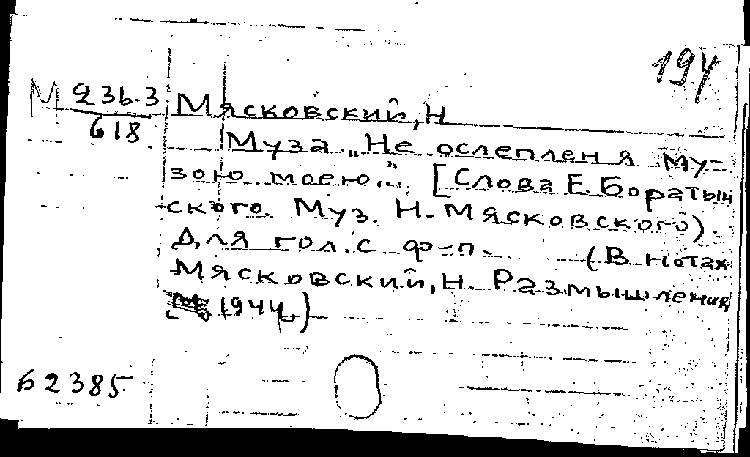 194
М 236.3
618
Мясковский, Н
Муза „Не ослеплен я му-
зою моею.." [Слова Е Боратын
ского. Муз. Н. Мясковского).
Для гол. с ф-п. (В нотах
Мясковский, Н. Размышления
1944)
62385